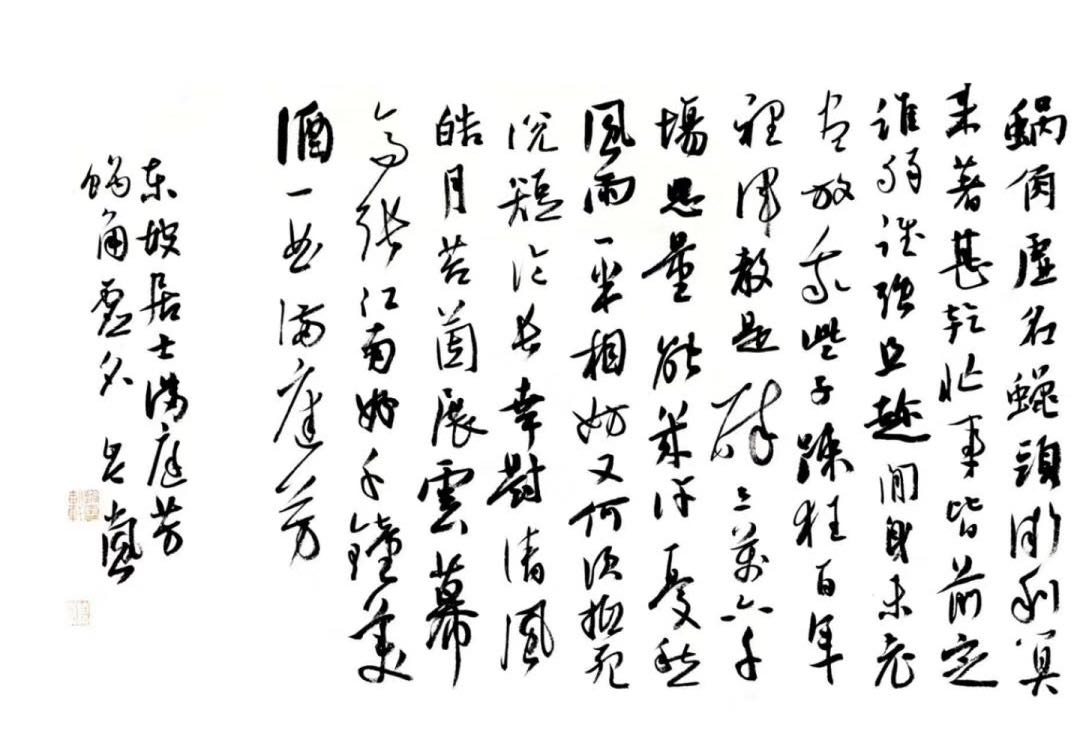 蝸角虛名蠅頭微利算
来著甚乾忙事皆前定
誰弱誰強且趁閒身未老
盡放我些子踈狂百年
裡渾教是醉三萬六千
場思量能幾許憂愁
風雨一半相妨又何須抵死
說短論長幸對清風
皓月苔茵展雲幕
高張江南好千鐘美
酒一曲滿庭芳
东坡居士滿庭芳
蝸角虛名